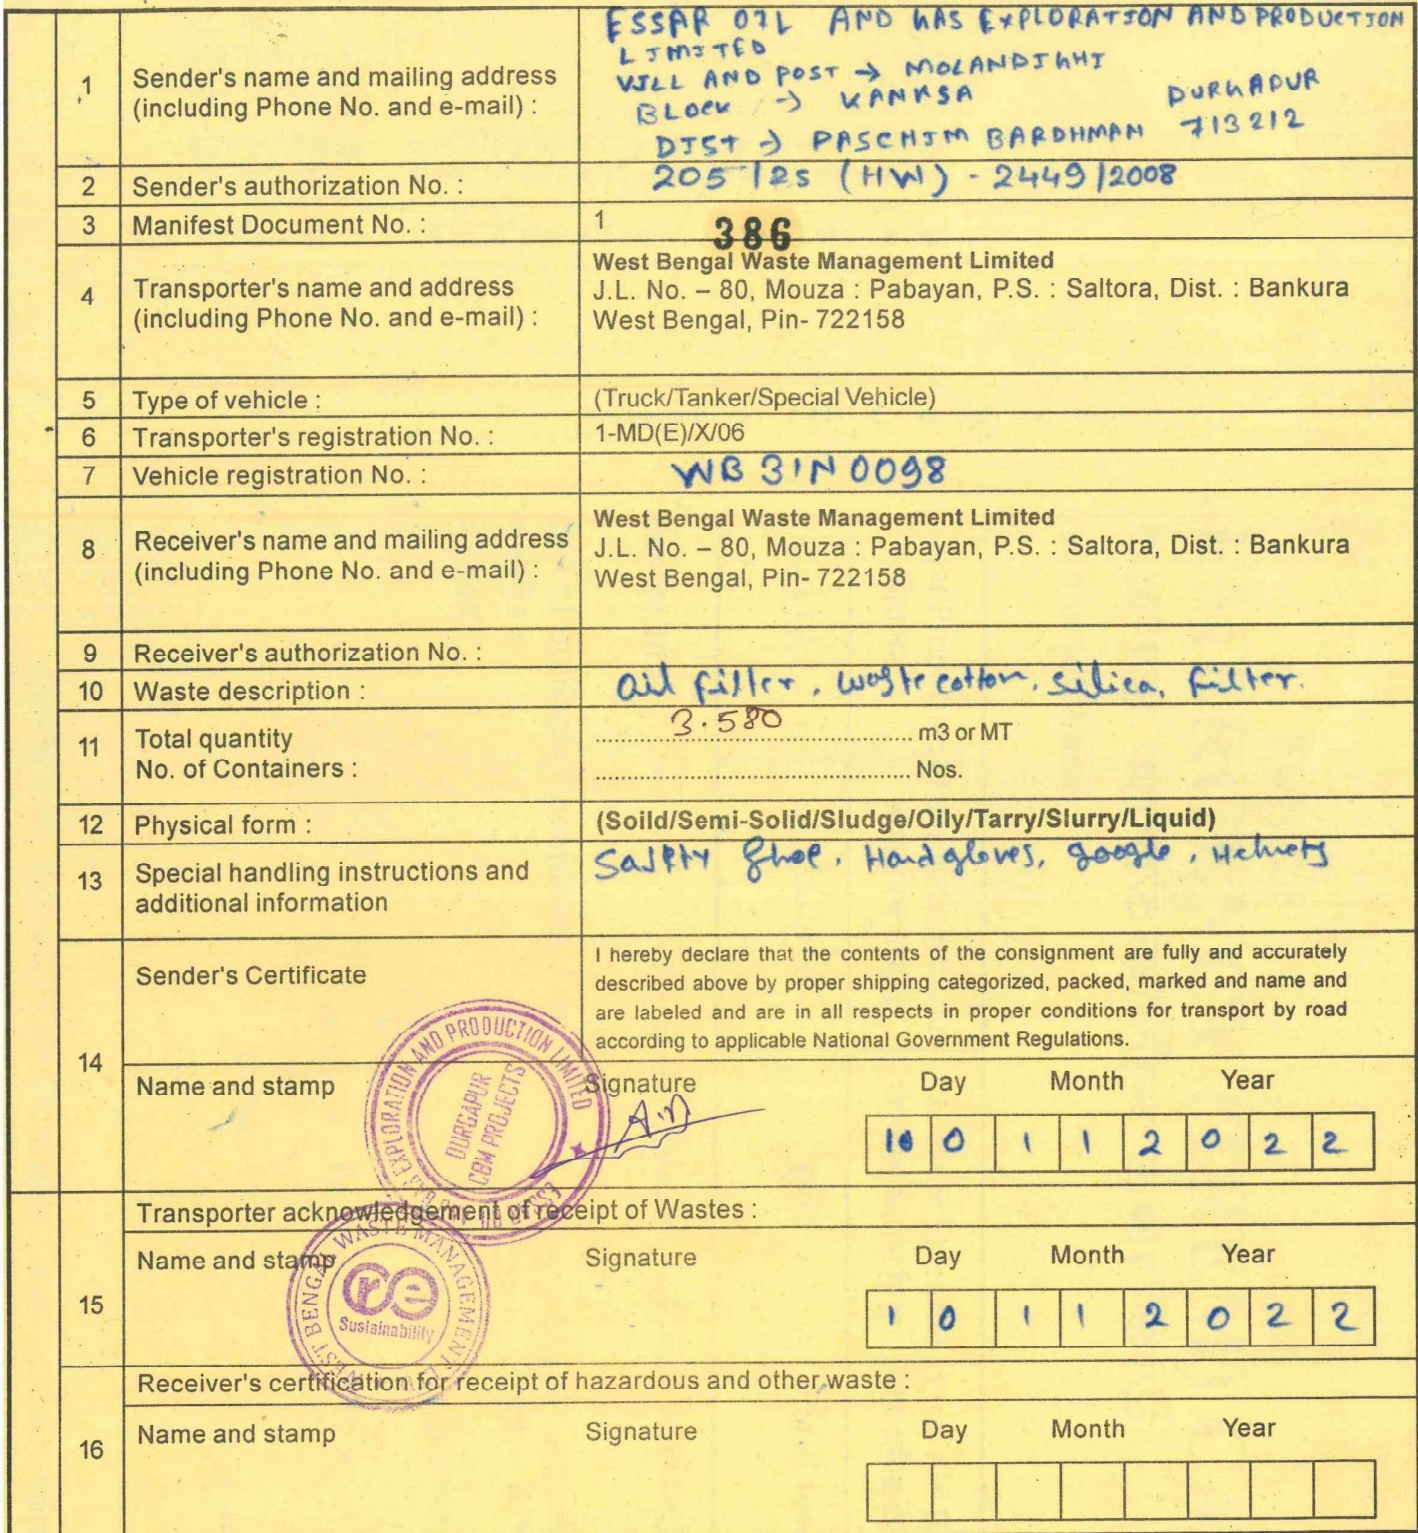 1 Sender's name and mailing address (including Phone No. and e-mail) :
ESSAR OIL AND GAS EXPLORATION AND PRODUCTION
LIMITED
VILL AND POST → MOLANDIGHI
BLOCK → KANKSA DURGAPUR
DIST → PASCHIM BARDHMAN 713212
2 Sender's authorization No. : 205/2S (HW) - 2449/2008
3 Manifest Document No. : 1 386
4 Transporter's name and address (including Phone No. and e-mail) :
West Bengal Waste Management Limited
J.L. No. – 80, Mouza : Pabayan, P.S. : Saltora, Dist. : Bankura
West Bengal, Pin- 722158
5 Type of vehicle : (Truck/Tanker/Special Vehicle)
6 Transporter's registration No. : 1-MD(E)/X/06
7 Vehicle registration No. : WB 31N 0098
8 Receiver's name and mailing address (including Phone No. and e-mail) :
West Bengal Waste Management Limited
J.L. No. – 80, Mouza : Pabayan, P.S. : Saltora, Dist. : Bankura
West Bengal, Pin- 722158
9 Receiver's authorization No. :
10 Waste description : oil filter, waste cotton, silica, filter.
11 Total quantity 3.580 m3 or MT
No. of Containers : Nos.
12 Physical form : (Soild/Semi-Solid/Sludge/Oily/Tarry/Slurry/Liquid)
13 Special handling instructions and additional information
Shoe, Hand gloves, google,
14 Sender's Certificate
I hereby declare that the contents of the consignment are fully and accurately
described above by proper shipping categorized, packed, marked and name and
are labeled and are in all respects in proper conditions for transport by road
according to applicable National Government Regulations.
Name and stamp Signature Day Month Year
1 0 1 1 2 0 2 2
ESSAR OIL AND GAS EXPLORATION AND PRODUCTION LIMITED
DURGAPUR
CBM PROJECTS
15 Transporter acknowledgement of receipt of Wastes :
Name and stamp Signature Day Month Year
1 0 1 1 2 0 2 2
WEST BENGAL WASTE MANAGEMENT
re
Sustainability
16 Receiver's certification for receipt of hazardous and other waste :
Name and stamp Signature Day Month Year